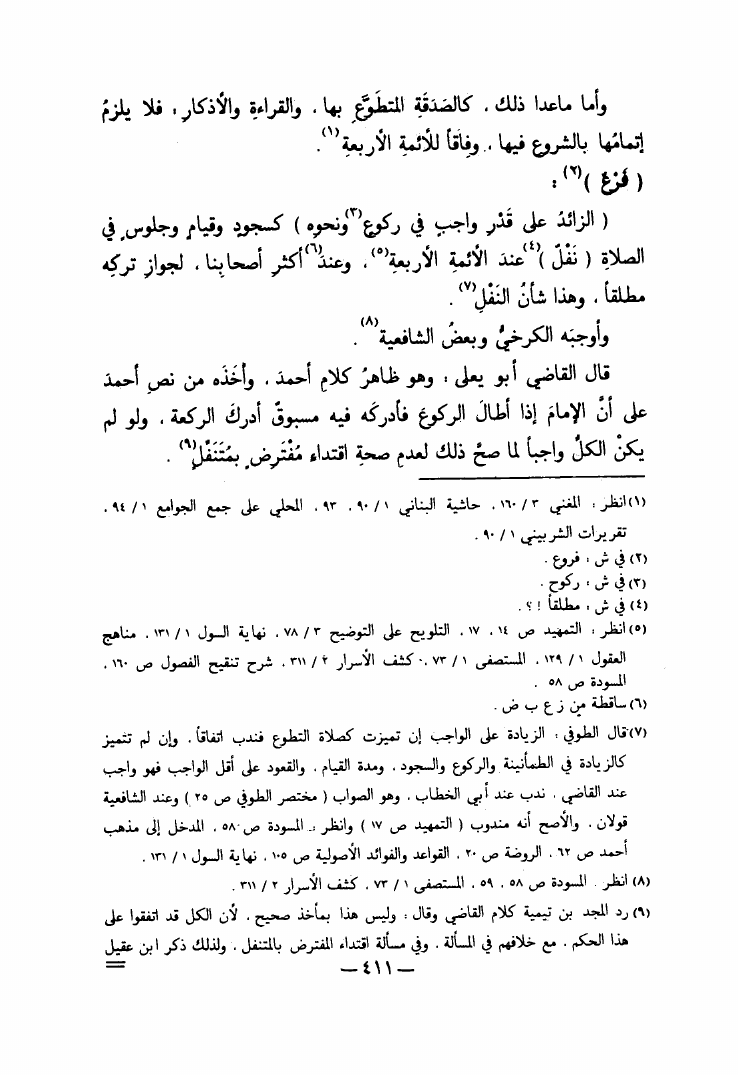 وأما ماعدا ذلك ، كالصَدَقَةِ المتطَوَّعِ بها ، والقراءةِ والأذكارِ ، فلا يلزمُ
إتمامُها بالشروع فيها ، وِفاقاً للأئمةِ الأربعةِ(١) .
( فَرْعٌ )(٢) :
( الزائدُ على قَدْرِ واجبٍ في ركوعٍ(٣) ونحوِه ) كسجودٍ وقيامٍ وجلوسٍ في
الصلاةِ ( نَفْلٌ )(٤) عندَ الأئمةِ الأربعةِ(٥) ، وعندَ(٦) أكثرِ أصحابِنا ، لجوازِ تركِه
مطلقاً ، وهذا شأنُ النَفْلِ(٧) .
وأوجبَه الكرخيُّ وبعضُ الشافعية(٨) .
قال القاضي أبو يعلى : وهو ظاهرُ كلامِ أحمدَ ، وأخَذَه من نصِ أحمدَ
على أنَّ الإمامَ إذا أطالَ الركوعَ فأدركَه فيه مسبوقٌ أدركَ الركعة ، ولو لم
يكنْ الكلُّ واجباً لما صحَّ ذلك لعدمِ صحةِ اقتداء مُفْتَرِضٍ بمُتَنَفِّلٍ(٩) .
(١) انظر : المغني ٣ / ١٦٠ ، حاشية البناني ١ / ٩٠ ، ٩٣ ، المحلي على جمع الجوامع ١ / ٩٤ ،
تقريرات الشربيني ١ / ٩٠ .
(٢) في ش : فروع .
(٣) في ش : ركوح .
(٤) في ش : مطلقاً ! ؟ .
(٥) انظر : التمهيد ص ١٤ ، ١٧ ، التلويح على التوضيح ٣ / ٧٨ ، نهاية السول ١ / ١٣١ ، مناهج
العقول ١ / ١٢٩ ، المستصفى ١ / ٧٣ ، كشف الأسرار ٢ / ٣١١ ، شرح تنقيح الفصول ص ١٦٠ ،
المسودة ص ٥٨ .
(٦) ساقطة من ز ع ب ض .
(٧) قال الطوفي : الزيادة على الواجب إن تميزت كصلاة التطوع فندب اتفاقاً ، وإن لم تتميز
كالزيادة في الطمأنينة والركوع والسجود ، ومدة القيام ، والقعود على أقل الواجب فهو واجب
عند القاضي ، ندب عند أبي الخطاب ، وهو الصواب ( مختصر الطوفي ص ٢٥ ) وعند الشافعية
قولان ، والأصح أنه مندوب ( التمهيد ص ١٧ ) وانظر : المسودة ص ٥٨ ، المدخل إلى مذهب
أحمد ص ٦٢ ، الروضة ص ٢٠ ، القواعد والفوائد الأصولية ص ١٠٥ ، نهاية السول ١ / ١٣١ .
(٨) انظر . المسودة ص ٥٨ ، ٥٩ ، المستصفى ١ / ٧٣ ، كشف الأسرار ٢ / ٣١١ .
(٩) رد المجد بن تيمية كلام القاضي وقال : وليس هذا بمأخذ صحيح ، لأن الكل قد اتفقوا على
هذا الحكم ، مع خلافهم في المسألة ، وفي مسألة اقتداء المفترض بالمتنفل ، ولذلك ذكر ابن عقيل
=
— ٤١١ —